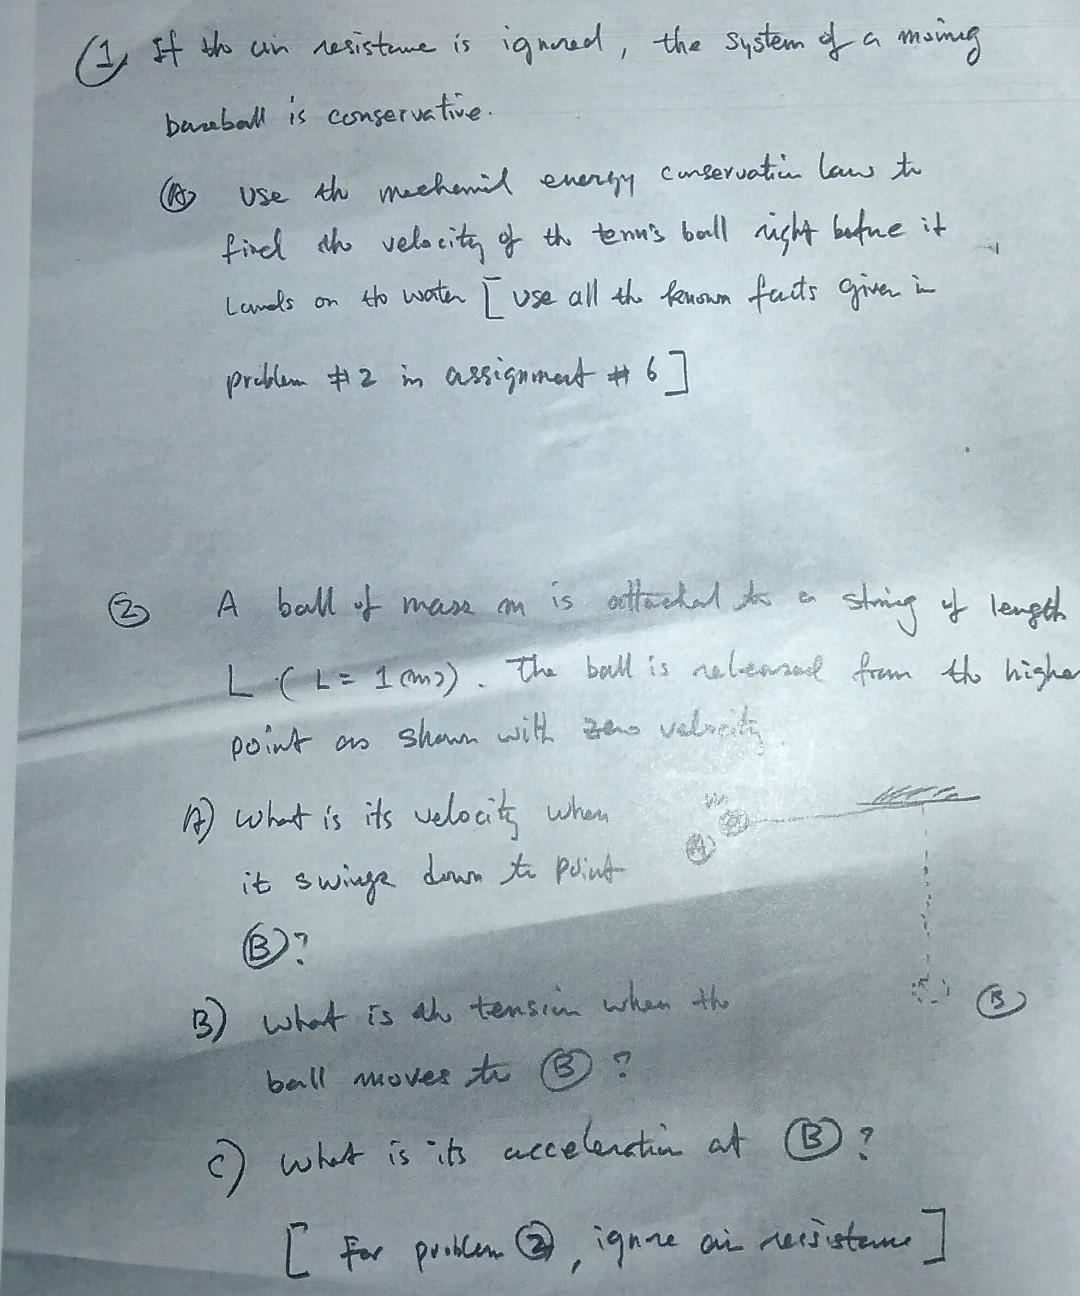 ① If the air resistance is ignored, the system of a moving
baseball is conservative.
(A) Use the mechanical energy conservation law to
find the velocity of the tennis ball right before it
Lands on the water [use all the known facts given in
problem #2 in assignment #6]
② A ball of mass m is attached to a string of length
L (L = 1 (m)). The ball is released from the higher
point as shown with zero velocity
A) What is its velocity when
it swings down to point
Ⓑ?
m
Ⓐ
B) What is the tension when the
ball moves to Ⓑ?
Ⓑ
C) What is its acceleration at Ⓑ?
[For problem ②, ignore air resistance]